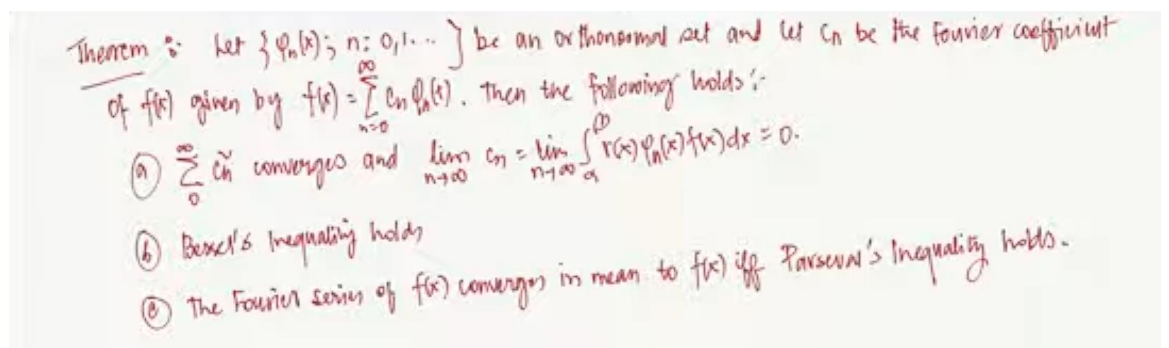 Theorem :- Let {φₙ(x); n: 0,1... } be an orthonormal set and let Cₙ be the Fourier coefficient
of f(x) given by f(x) = ∑_{n=0}^{∞} Cₙ φₙ(x). Then the following holds :-
(a) ∑_{0}^{∞} Cₙ² converges and lim_{n→∞} Cₙ = lim_{n→∞} ∫_{α}^{β} r(x) φₙ(x) f(x) dx = 0.
(b) Bessel's Inequality holds
(c) The Fourier series of f(x) converges in mean to f(x) iff Parseval's Inequality holds.